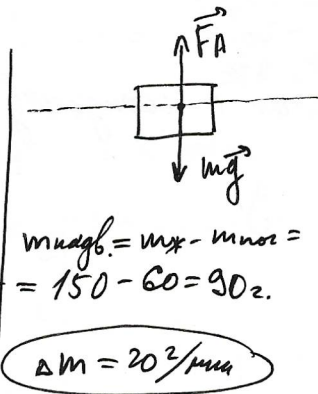 F⃗A
mg⃗
mнадв. = mж - mпог =
= 150 - 60 = 90г.
Δm = 20 г/мин